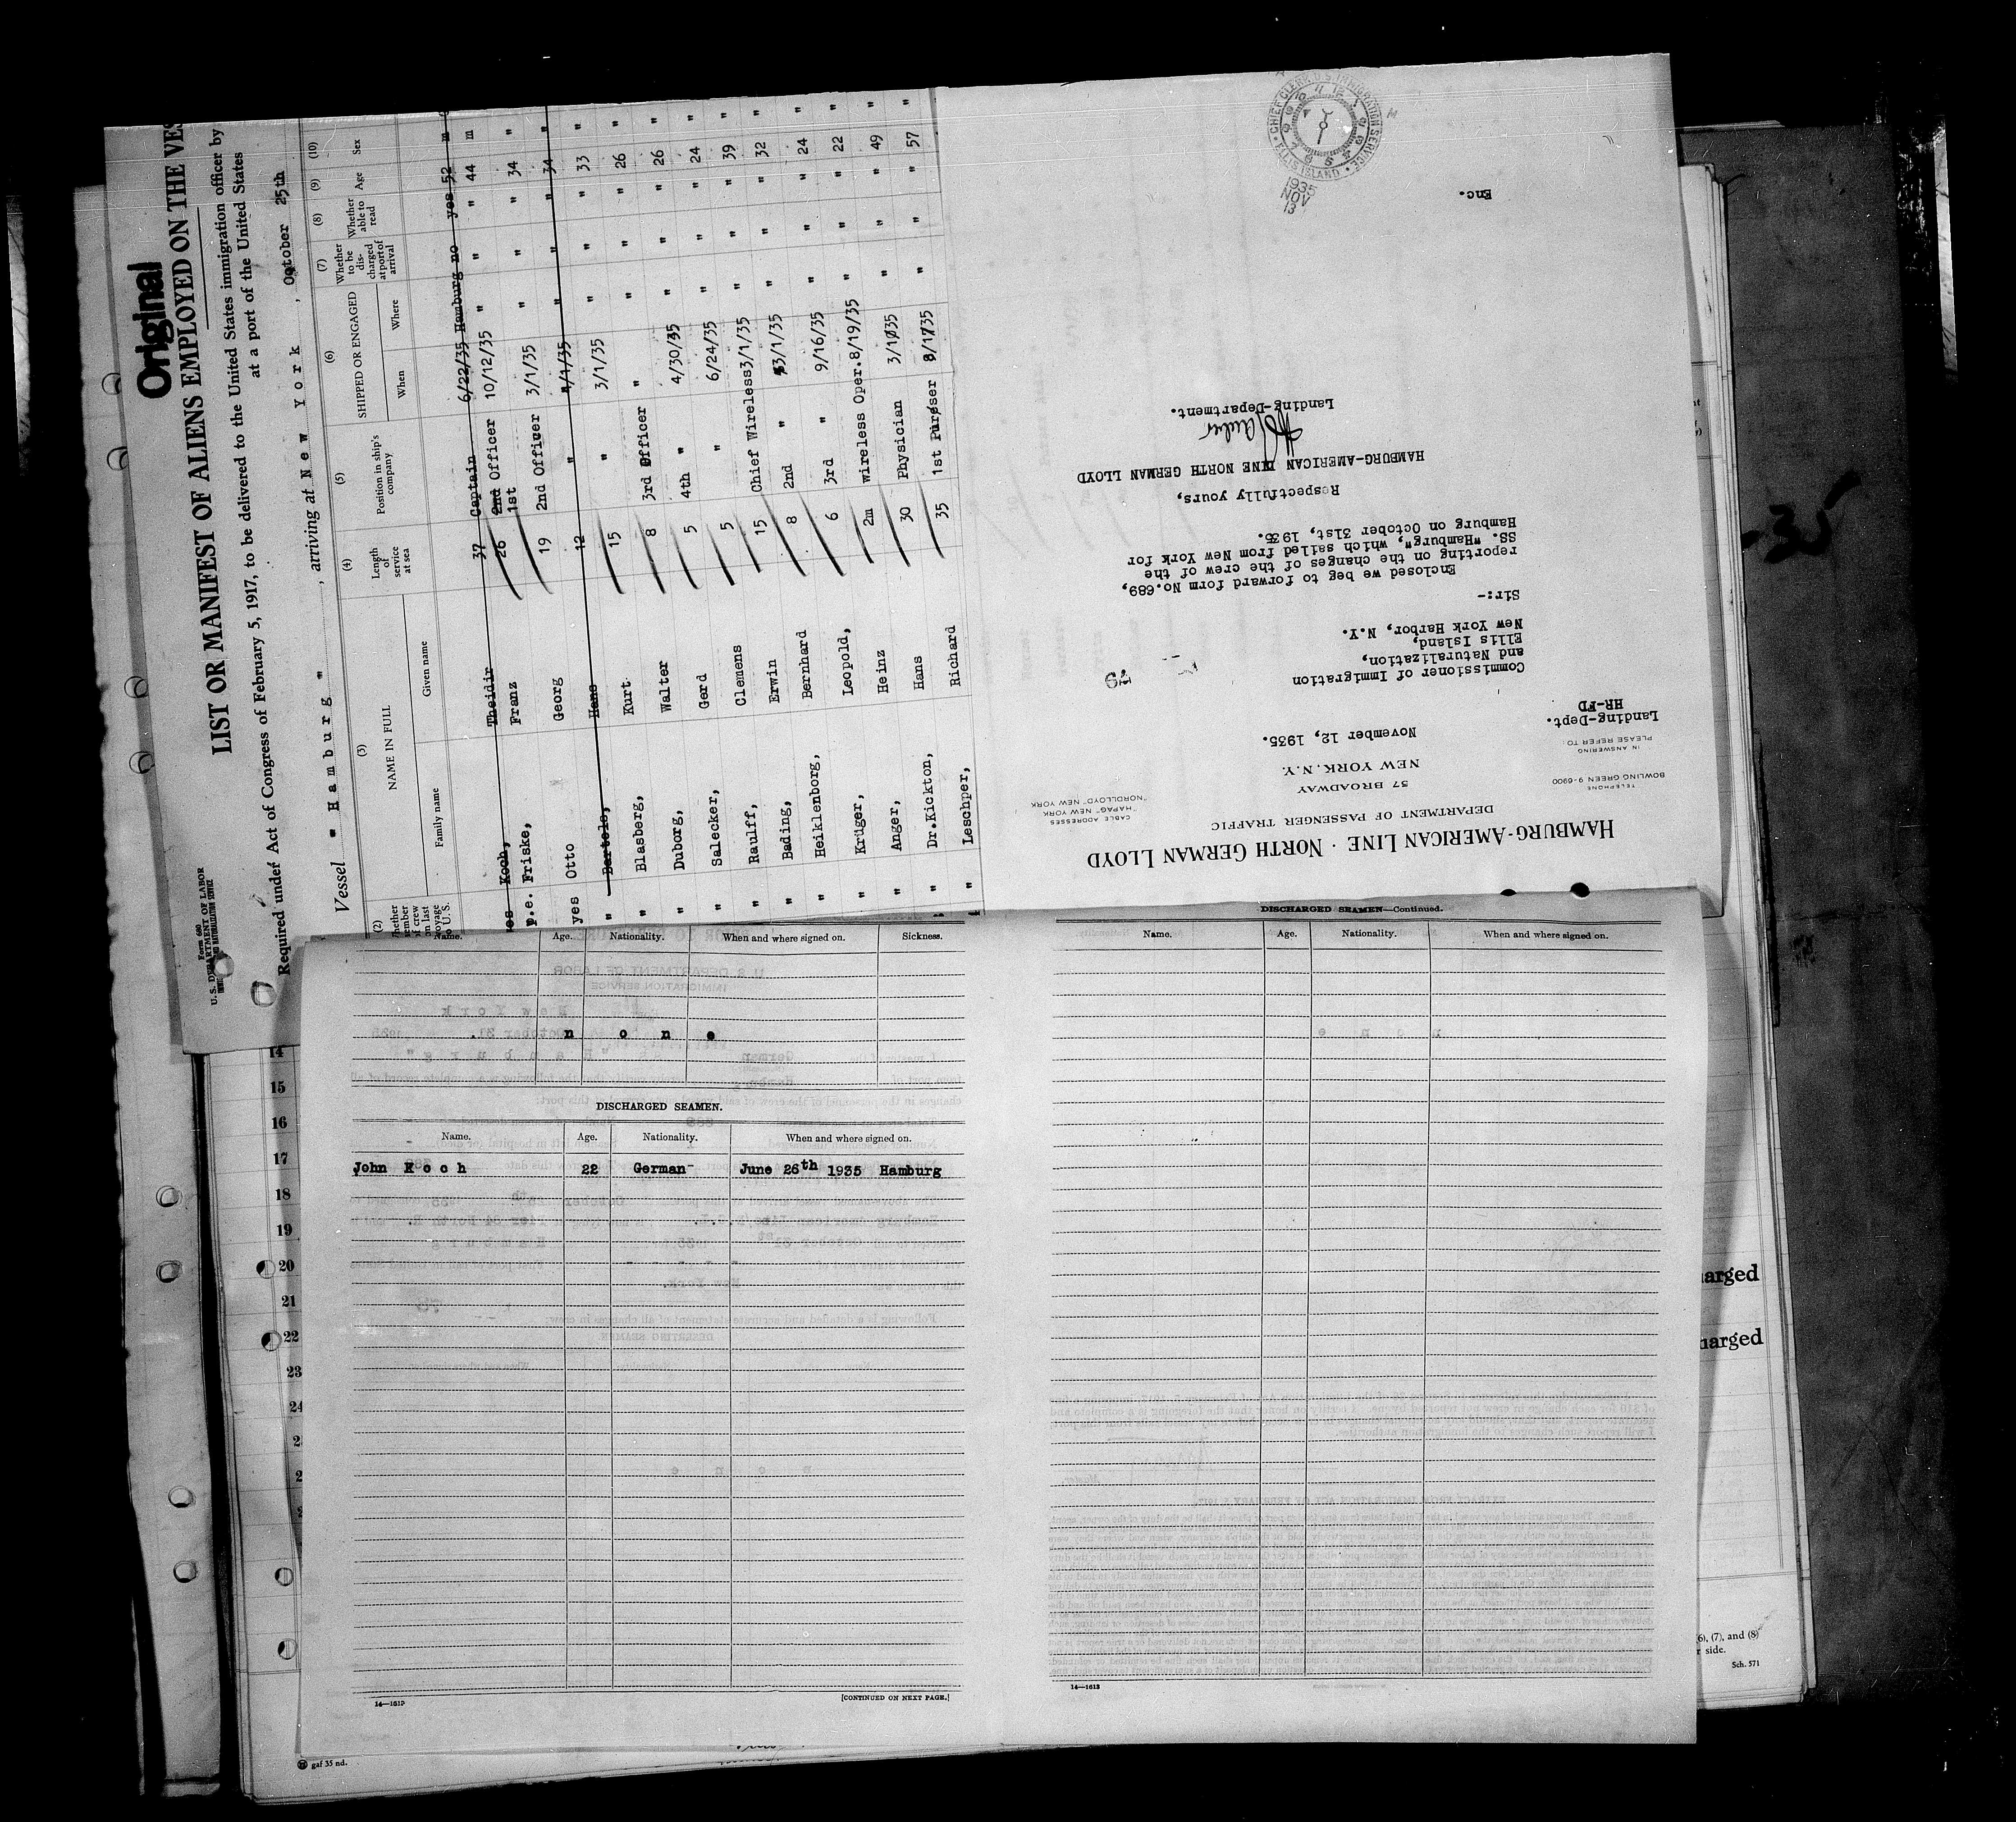 Original
Form 680
U. S. DEPARTMENT OF LABOR
LIST OR MANIFEST OF ALIENS EMPLOYED ON THE VES
Required under Act of Congress of February 5, 1917, to be delivered to the United States immigration officer by
at a port of the United States
Vessel " Hamburg " , arriving at New York , October 25th
(2) (3) (4) (5) (6) (7) (8) (9) (10)
NAME IN FULL
Family name Given name
Length of service at sea
Position in ship's company
SHIPPED OR ENGAGED
When Where
Whether to be discharged at port of arrival
Whether able to read
Age
Sex
Koch, Theidir 37 Captain 6/22/35 Hamburg no yes 52 m
p.e. Friske, Franz 26 2nd Officer 10/12/35 " " " 44 m
1st
yes Otto Georg 19 2nd Officer 3/1/35 " " " 34 "
" Bartels, Hans 12 " 4/1/35 " " " 34 "
" Blasberg, Kurt 15 " 3/1/35 " " " 33 "
" Duborg, Walter 8 3rd Officer " " " " 26 "
" Salecker, Gerd 5 4th " 4/30/35 " " " 26 "
" Raulff, Clemens 5 " 6/24/35 " " " 24 "
" Bading, Erwin 15 Chief Wireless 3/1/35 " " " 39 "
" Heiklenborg, Bernhard 8 2nd " 3/1/35 " " " 32 "
" Krüger, Hans Leopold, 6 3rd " 9/16/35 " " " 24 "
" Anger, Heinz 2m Wireless Oper. 8/19/35 " " " 22 "
" Dr.Kickton, Hans 30 Physician 3/1/35 " " " 49 "
" Leschper, Richard 35 1st Purser 8/1/35 " " " 57 "
HAMBURG-AMERICAN LINE · NORTH GERMAN LLOYD
DEPARTMENT OF PASSENGER TRAFFIC
57 BROADWAY
NEW YORK, N.Y.
TELEPHONE
BOWLING GREEN 9-6900
IN ANSWERING
PLEASE REFER TO:
Landing-Dept.
HR-FD
CABLE ADDRESSES
"HAPAG" NEW YORK
"NORDLLOYD" NEW YORK
November 12, 1935.
Commissioner of Immigration
and Naturalization,
Ellis Island,
New York Harbor, N.Y.
Sir:-
Enclosed we beg to forward form No.689,
reporting on the changes of the crew of the
SS. "Hamburg", which sailed from New York for
Hamburg on October 31st, 1935.
Respectfully yours,
HAMBURG-AMERICAN LINE NORTH GERMAN LLOYD
Landing-Department.
Enc.
CHIEF CLERK, U.S. IMMIGRATION SERVICE
ELLIS ISLAND
1935
NOV
13
Name. Age. Nationality. When and where signed on. Sickness.
none
DISCHARGED SEAMEN.
Name. Age. Nationality. When and where signed on.
John Koch 22 German June 26th 1935 Hamburg
14—1613
[CONTINUED ON NEXT PAGE.]
DISCHARGED SEAMEN—Continued.
Name. Age. Nationality. When and where signed on.
14—1613
14
15
16
17
18
19
20
21
22
23
24
-35
arged
harged
(6), (7), and (8)
side.
Sch. 571
gaf 35 nd.